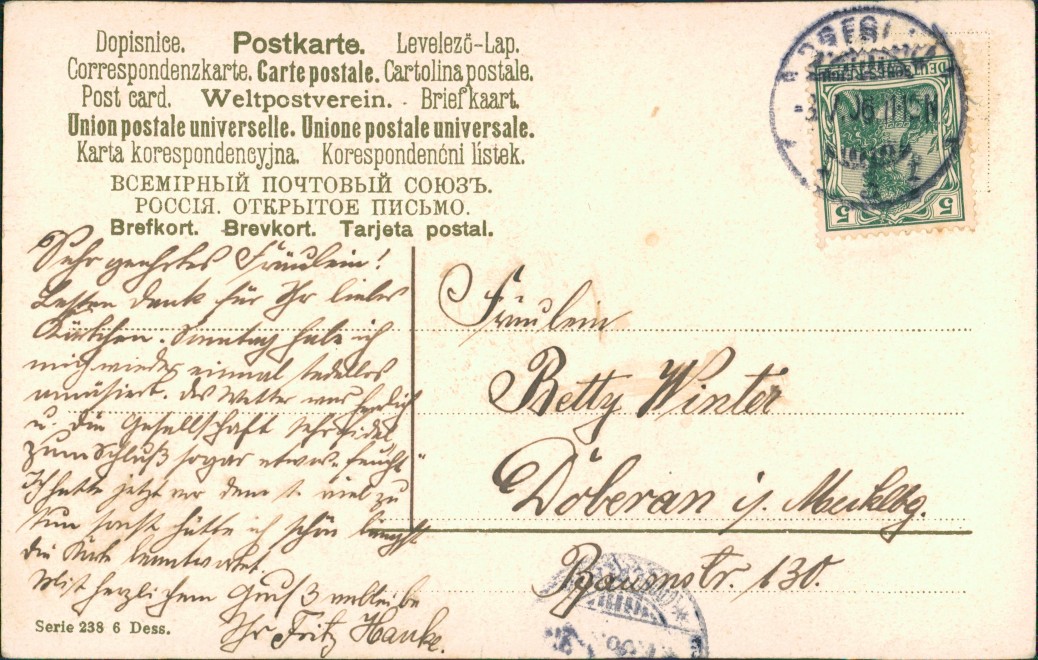 Dopisnice. Postkarte. Levelező-Lap.
Correspondenzkarte. Carte postale. Cartolina postale.
Post card. Weltpostverein. - Briefkaart.
Union postale universelle. Unione postale universale.
Karta korespondencyjna. Korespondenćni lístek.
ВСЕМІРНЫЙ ПОЧТОВЫЙ СОЮЗЪ.
РОССІЯ. ОТКРЫТОЕ ПИСЬМО.
Brefkort. Brevkort. Tarjeta postal.
Sehr geehrtes Fräulein!
Besten Dank für Ihr liebes
Kärtchen. Sonntag habe ich
mich wieder einmal tadellos
amüsiert. Das Wetter war herrlich
u. die Gesellschaft sehr fidel
zum Schluß sogar etwas "feucht"
Ich hatte jetzt vor dem 1. viel zu
tun sonst hätte ich schon längst
die Karte beantwortet.
Mit herzlichem Gruß verbleibe
Ihr Fritz Hanke.
Fräulein
Betty Winter
Doberan i. Mecklbg.
Baumstr. 130.
DEUTSCHES REICH
5 5
Serie 238 6 Dess.